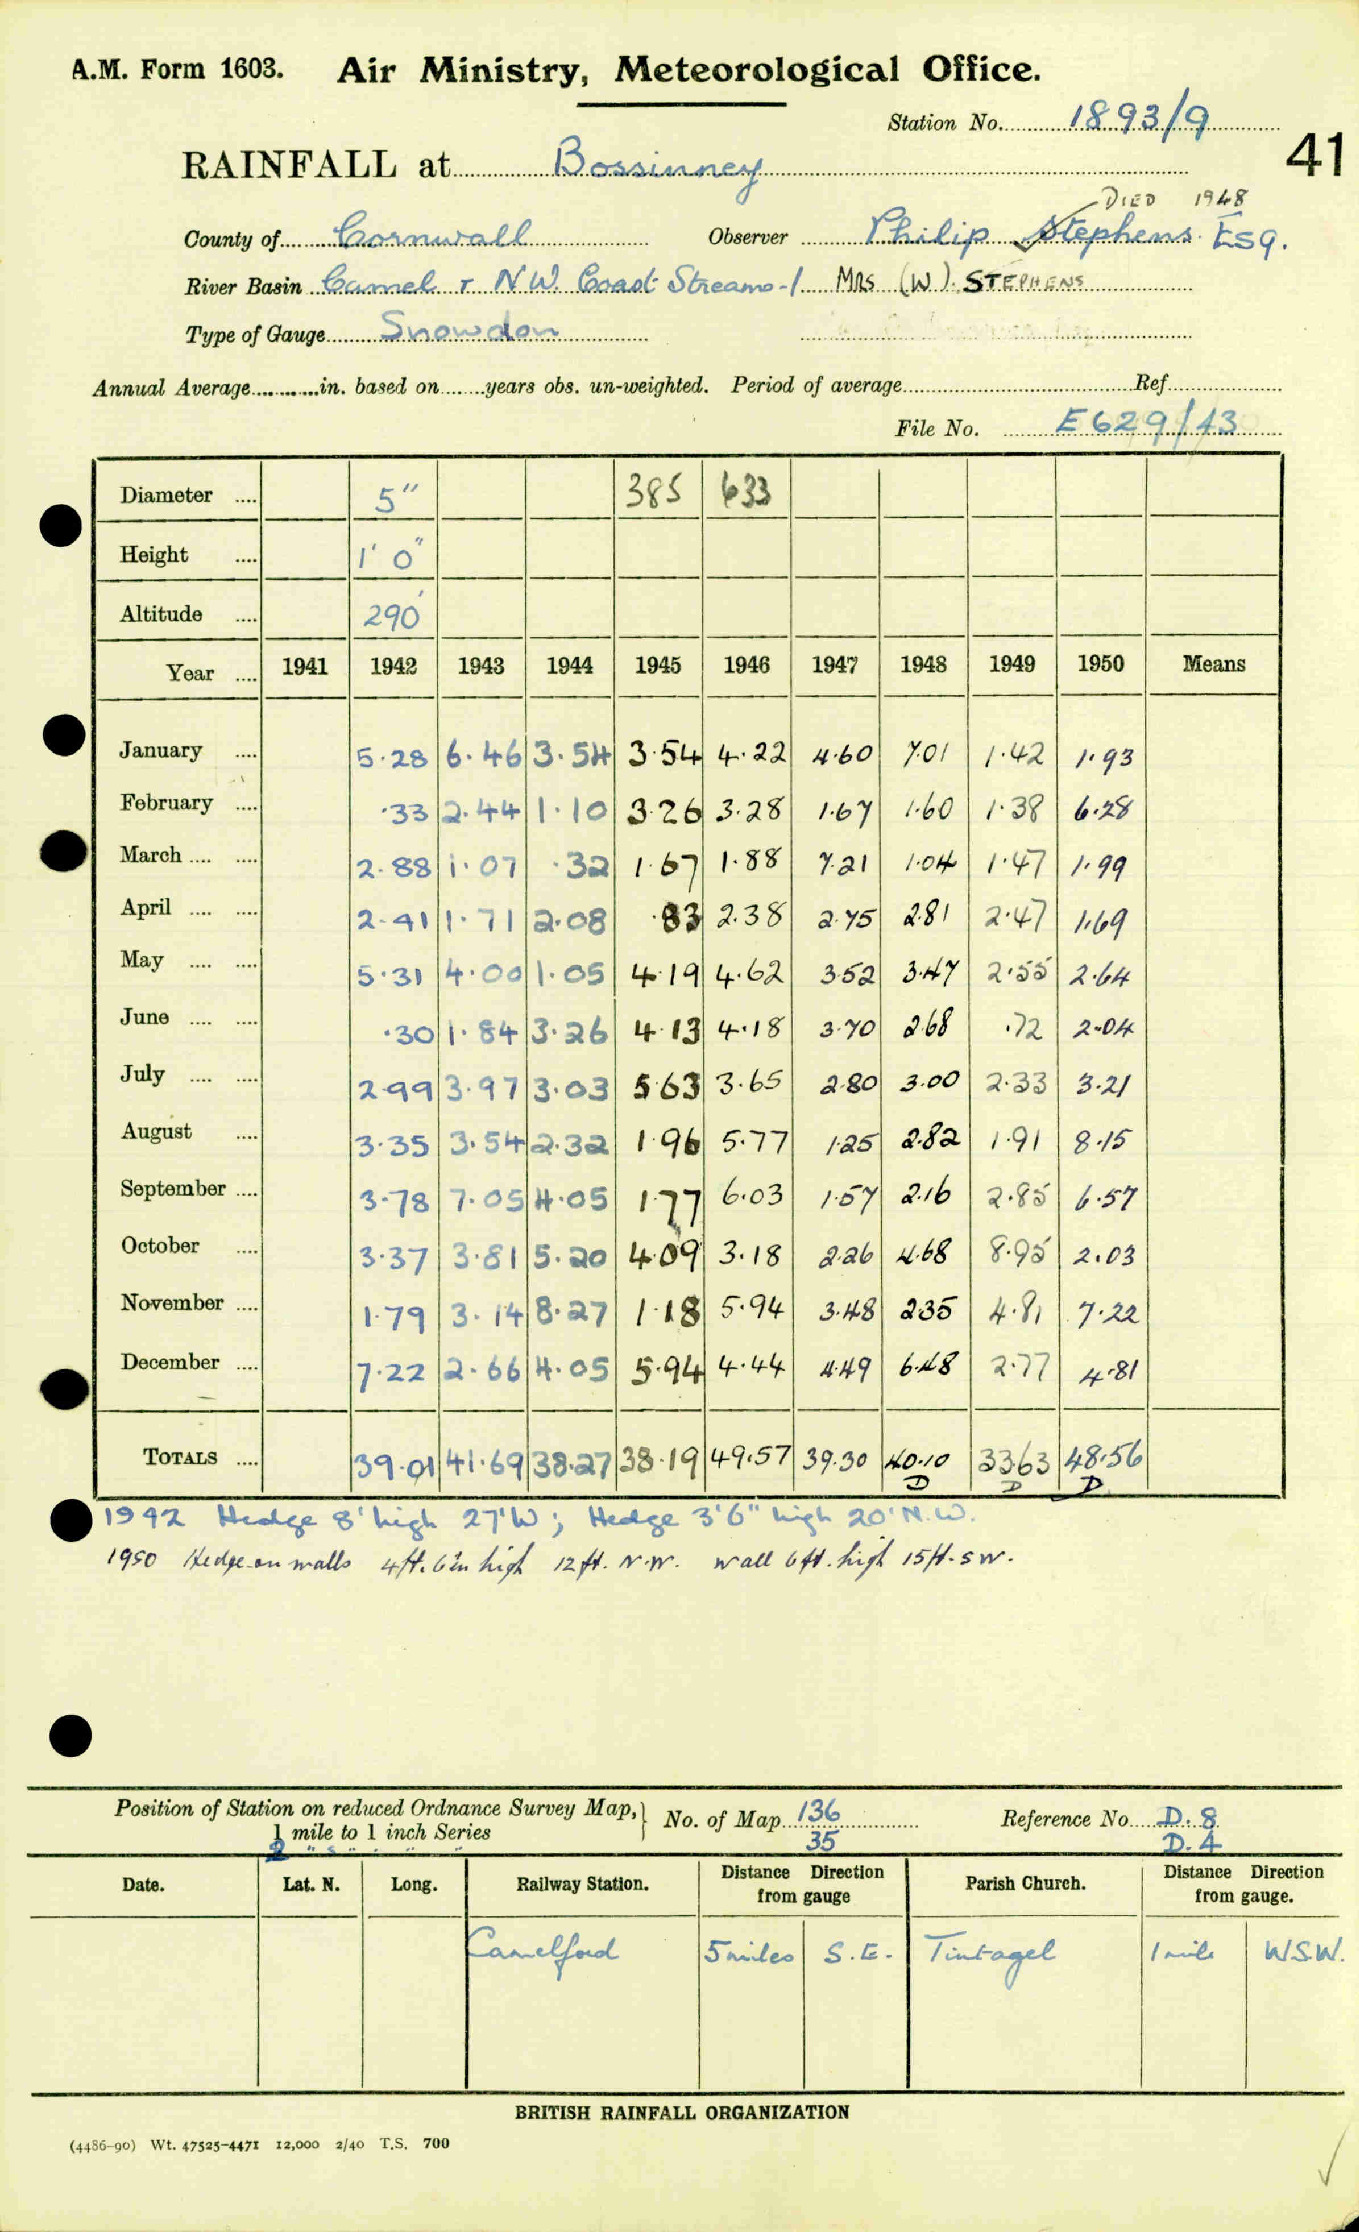 A.M. Form 1603. Air Ministry, Meteorological Office.
Station No. 1893/9
41
RAINFALL at Bossinney
DIED 1948
County of Cornwall Observer Philip Stephens Esq.
River Basin Camel & NW Coast Streams-1 MRS (W). STEPHENS
Type of Gauge Snowdon
Annual Average in. based on years obs. un-weighted. Period of average Ref
File No. E629/43
Diameter .... 5" 385 633
Height .... 1' 0"
Altitude .... 290'
Year .... 1941 1942 1943 1944 1945 1946 1947 1948 1949 1950 Means
January .... 5.28 6.46 3.54 3.54 4.22 4.60 7.01 1.42 1.93
February .... .33 2.44 1.10 3.26 3.28 1.67 1.60 1.38 6.28
March .... .... 2.88 1.07 .32 1.67 1.88 7.21 1.04 1.47 1.99
April .... .... 2.41 1.71 2.08 .83 2.38 2.75 2.81 2.47 1.69
May .... .... 5.31 4.00 1.05 4.19 4.62 3.52 3.47 2.55 2.64
June .... .... .30 1.84 3.26 4.13 4.18 3.70 2.68 .72 2.04
July .... .... 2.99 3.97 3.03 5.63 3.65 2.80 3.00 2.33 3.21
August .... 3.35 3.54 2.32 1.96 5.77 1.25 2.82 1.91 8.15
September .... 3.78 7.05 4.05 1.77 6.03 1.57 2.16 2.85 6.57
October .... 3.37 3.81 5.20 4.09 3.18 2.26 4.68 8.95 2.03
November .... 1.79 3.14 8.27 1.18 5.94 3.48 2.35 4.81 7.22
December .... 7.22 2.66 4.05 5.94 4.44 4.49 6.48 2.77 4.81
TOTALS .... 39.01 41.69 38.27 38.19 49.57 39.30 40.10 33.63 48.56
D D D
1942 Hedge 8' high 27' W; Hedge 3'6" high 20' N.W.
1950 Hedge on walls 4ft. 6in high 12 ft. N.W. wall 6ft. high 15ft. SW.
Position of Station on reduced Ordnance Survey Map, No. of Map 136 Reference No. D.8
1 mile to 1 inch Series 35 D.4
2 " " " "
Date. Lat. N. Long. Railway Station. Distance from gauge Direction Parish Church. Distance from gauge. Direction
Camelford 5 miles S.E. Tintagel 1 mile W.S.W.
BRITISH RAINFALL ORGANIZATION
(4486-90) Wt. 47525-4471 12,000 2/40 T.S. 700